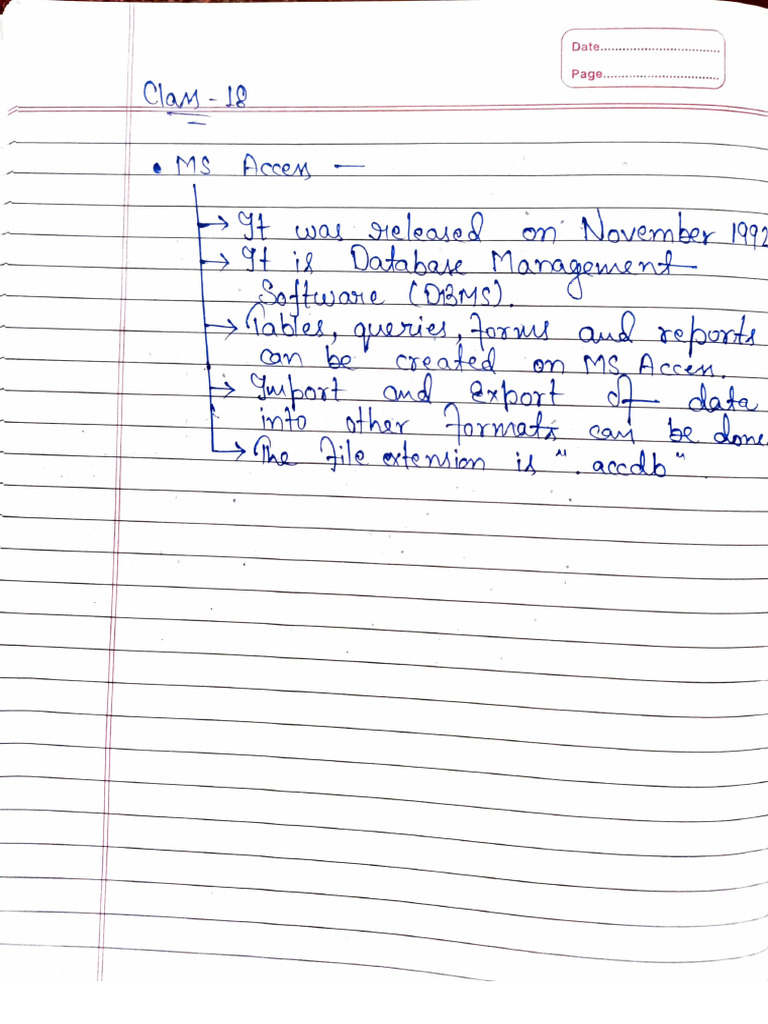 Date..............................
Page..............................
Class - 18
• MS Access —
→ It was released on November 1992
→ It is Database Management
Software (DBMS).
→ Tables, queries, forms and reports
can be created on MS Access.
→ Import and export of data
into other formats can be done.
→ The file extension is ".accdb"